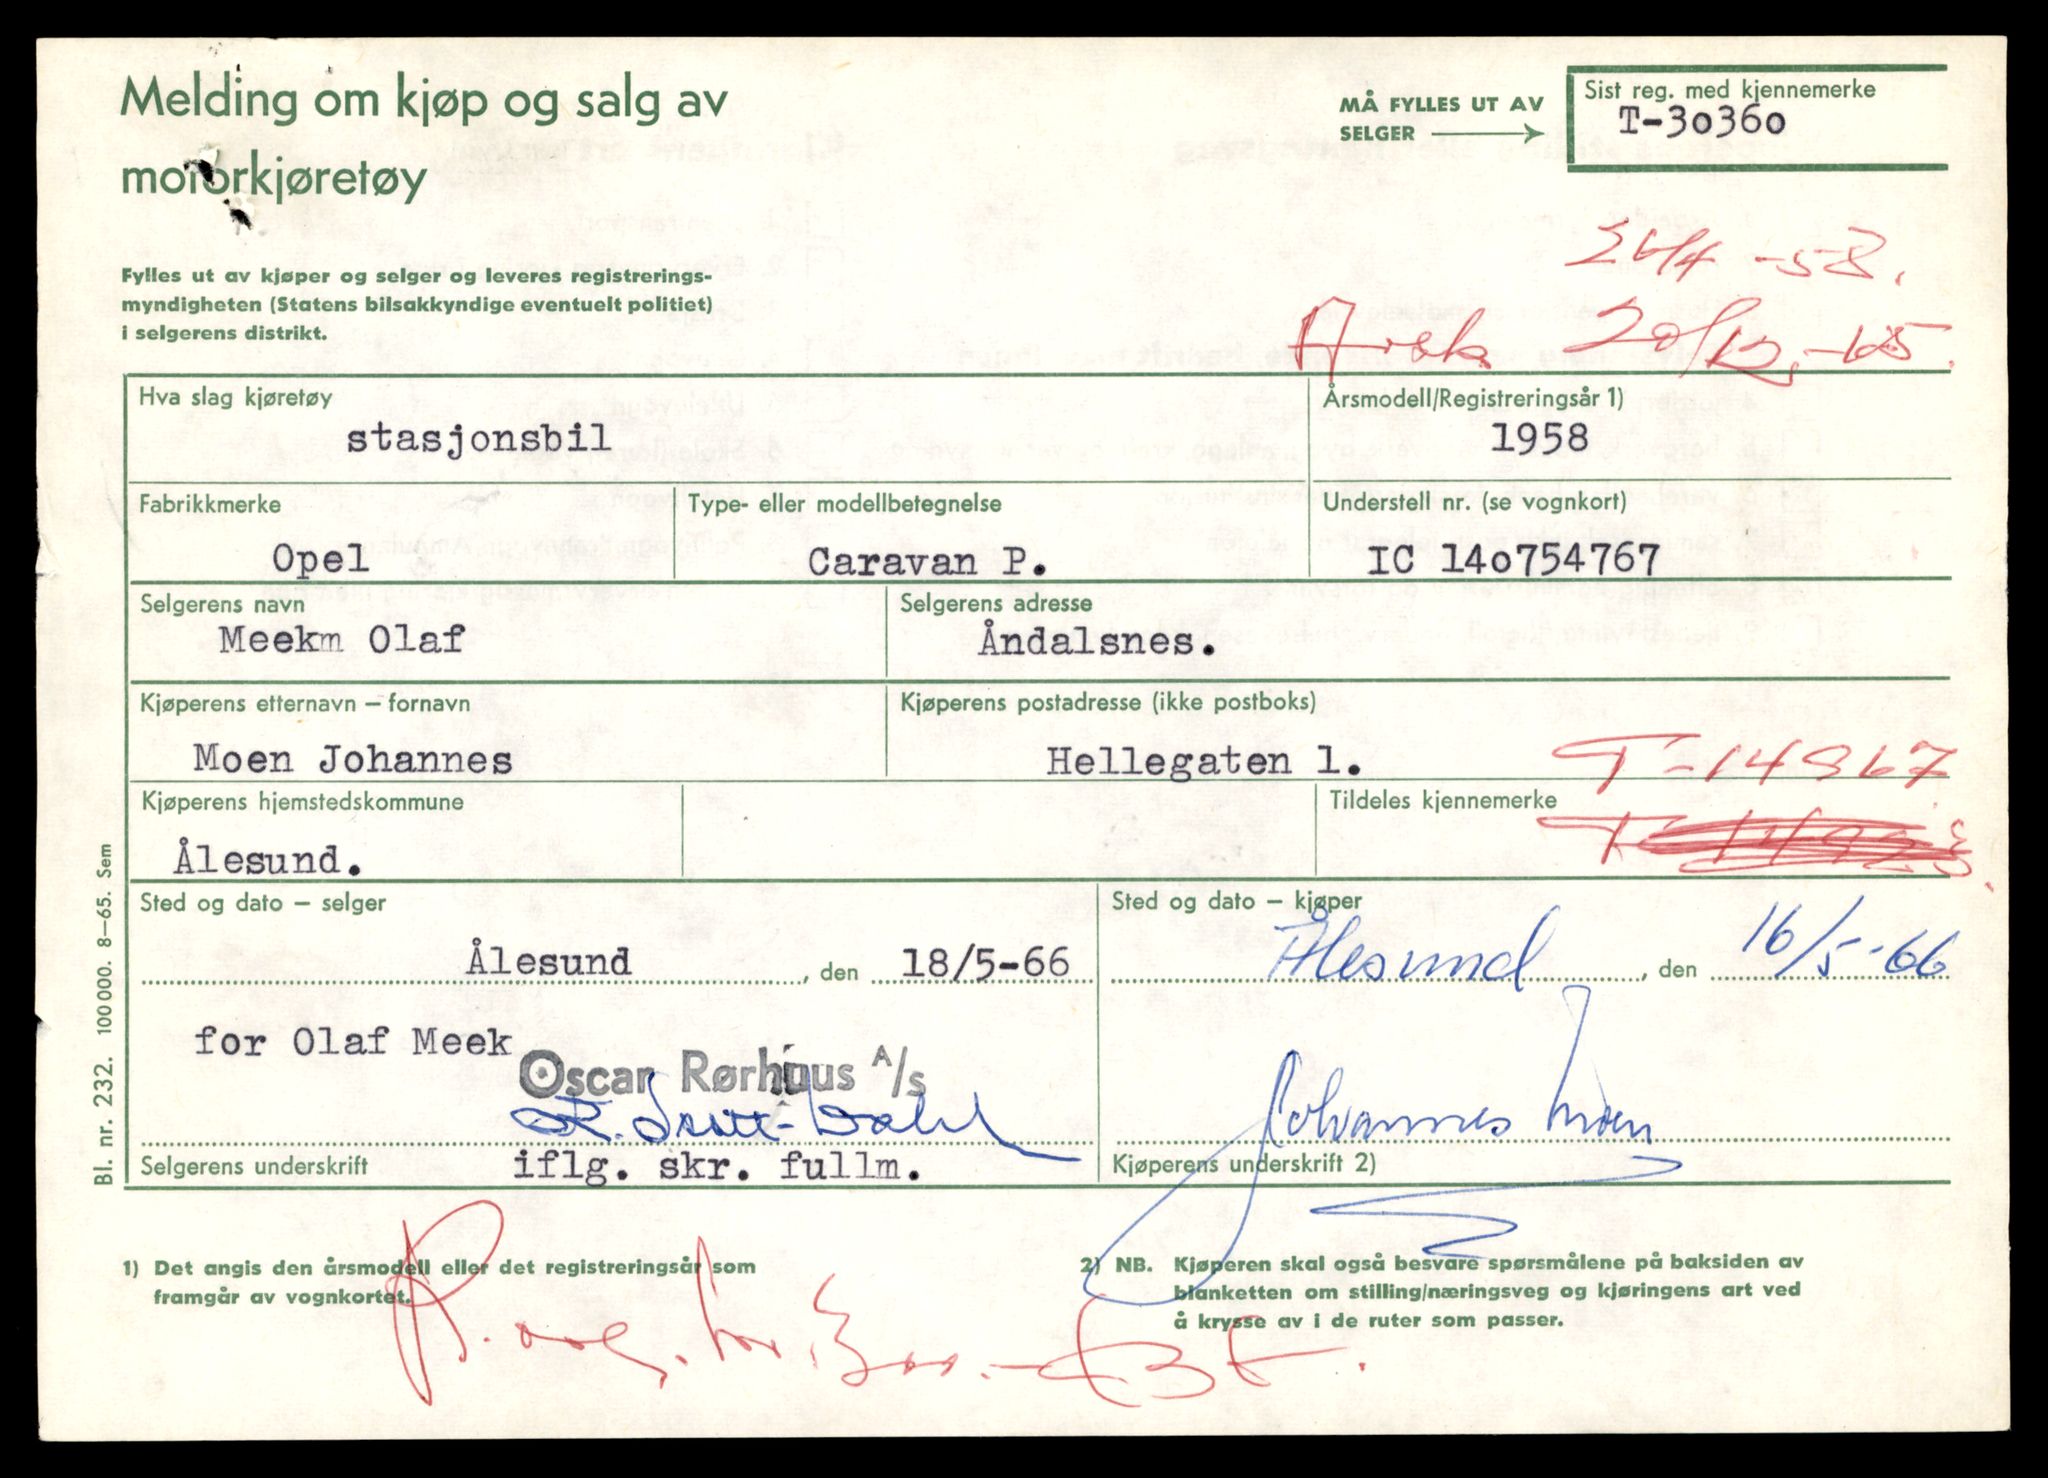 Melding om kjøp og salg av
motorkjøretøy
MÅ FYLLES UT AV
SELGER
Sist reg. med kjennemerke
T-30360
Fylles ut av kjøper og selger og leveres registrerings-
myndigheten (Statens bilsakkyndige eventuelt politiet)
i selgerens distrikt.
-58.
20/12,-65.
Hva slag kjøretøy
stasjonsbil
Årsmodell/Registreringsår 1)
1958
Fabrikkmerke
Opel
Type- eller modellbetegnelse
Caravan P.
Understell nr. (se vognkort)
IC 140754767
Selgerens navn
Meekm Olaf
Selgerens adresse
Åndalsnes.
Kjøperens etternavn – fornavn
Moen Johannes
Kjøperens postadresse (ikke postboks)
Hellegaten 1.
T-14967
Kjøperens hjemstedskommune
Ålesund.
Tildeles kjennemerke
Sted og dato – selger
Ålesund, den 18/5-66
Sted og dato – kjøper
Ålesund, den 16/5-66
for Olaf Meek
Oscar Rørhuus A/s
Johannes Moen
Selgerens underskrift
iflg. skr. fullm.
Kjøperens underskrift 2)
1) Det angis den årsmodell eller det registreringsår som
framgår av vognkortet.
2) NB. Kjøperen skal også besvare spørsmålene på baksiden av
blanketten om stilling/næringsveg og kjøringens art ved
å krysse av i de ruter som passer.
Bl. nr. 232. 100 000. 8–65. Sem